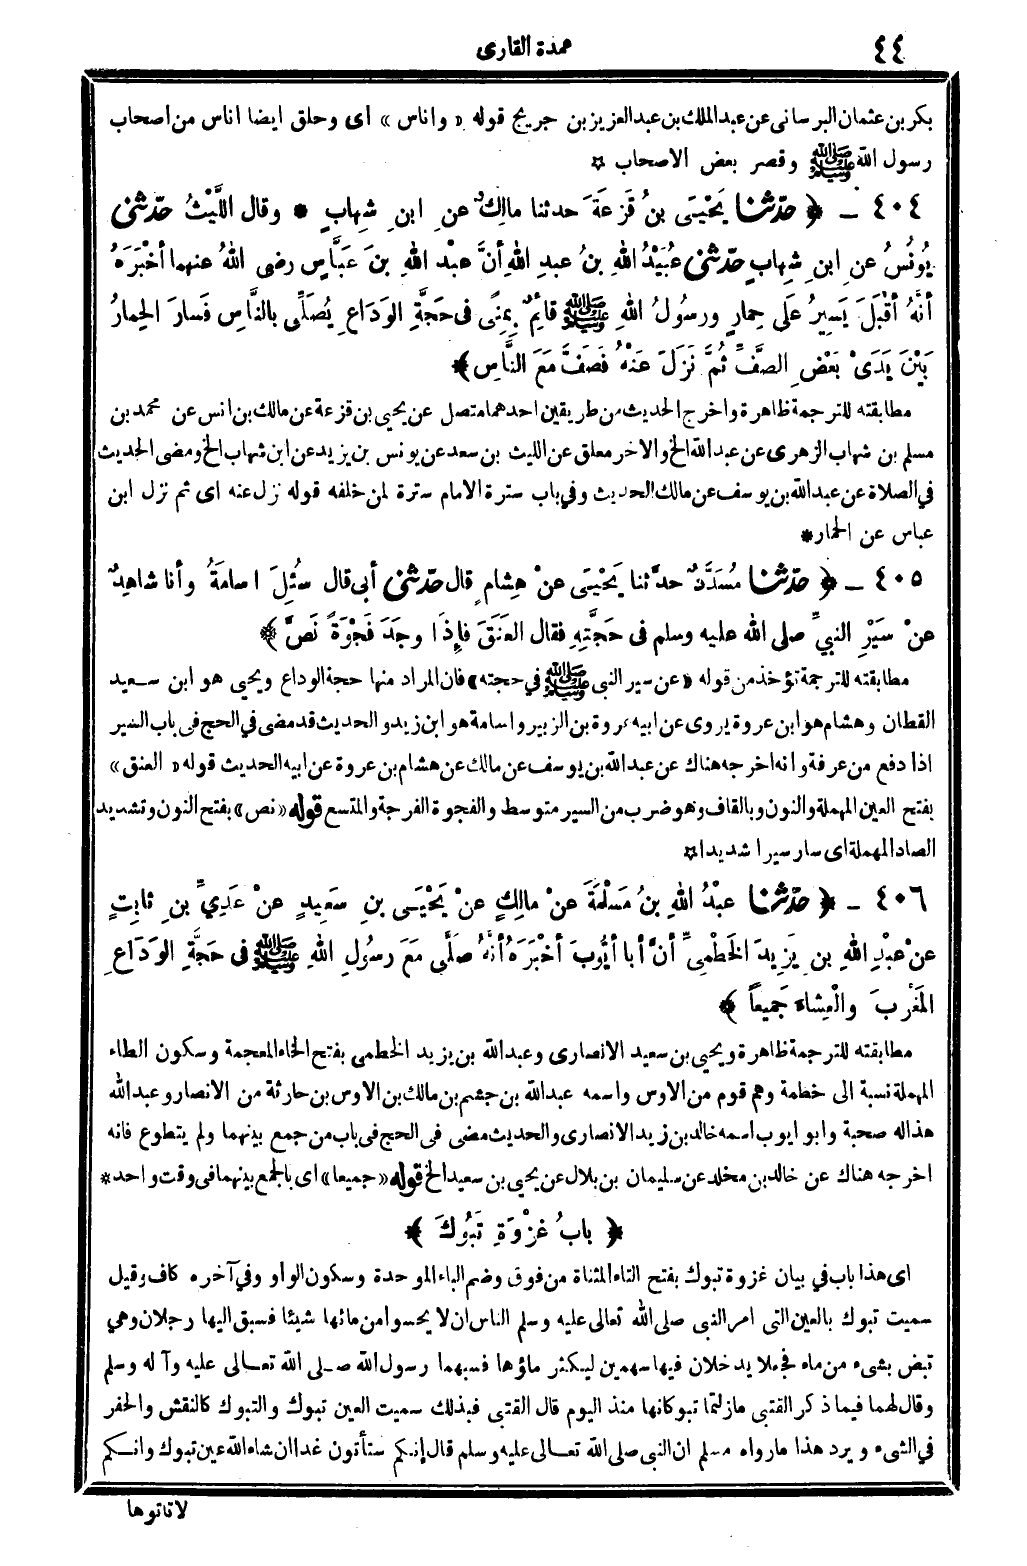 ٤٤
عمدة القارى
بكر بن عثمان البرسانى عن عبد الملك بن عبد العزيز بن جريج قوله « واناس » اى وحلق ايضا اناس من اصحاب
رسول الله ﷺ وقصر بعض الاصحاب ✡
٤٠٤ - ﴿ حدّثنا يَحْيَىٰ بنُ قَزَعَةَ حدثنا مالِكٌ عنِ ابنِ شِهابٍ * وقال اللَّيْثُ حدّثنى
يُونُسُ عنِ ابنِ شِهابٍ حدّثنى عُبَيْدُ اللهِ بنُ عبدِ اللهِ أنَّ عبْدَ اللهِ بنَ عَبَّاسٍ رضى اللهُ عنهما أخْبَرَهُ
أنَّهُ أقْبَلَ يَسِيرُ عَلَى حِمارٍ ورسُولُ اللهِ ﷺ قائِمٌ بِمِنًى فى حَجَّةِ الوَدَاعِ يُصَلِّى بالنَّاسِ فَسارَ الحِمارُ
بَيْنَ يَدَىْ بَعْضِ الصَّفِّ ثُمَّ نَزَلَ عَنْهُ فَصَفَّ مَعَ النَّاسِ ﴾
مطابقته للترجمة ظاهرة واخرج الحديث من طريقين احدهما متصل عن يحيى بن قزعة عن مالك بن انس عن محمد بن
مسلم بن شهاب الزهرى عن عبد الله الخ والاخر معلق عن الليث بن سعد عن يونس بن يزيد عن ابن شهاب الخ ومضى الحديث
في الصلاة عن عبد الله بن يوسف عن مالك الحديث وفي باب سترة الامام سترة لمن خلفه قوله نزل عنه اى ثم نزل ابن
عباس عن الحمار *
٤٠٥ - ﴿ حدّثنا مُسَدَّدٌ حدَّثنا يَحْيَىٰ عنْ هِشامٍ قال حدّثنى أبى قال سُئِلَ اسامَةُ وأنا شاهِدٌ
عنْ سَيْرِ النبيِّ صلى الله عليه وسلم فى حَجَّتِهِ فقال العَنَقَ فإِذَا وجَدَ فَجْوَةً نَصَّ ﴾
مطابقته للترجمة تؤخذ من قوله « عن سير النبى ﷺ في حجته » فان المراد منها حجة الوداع ويحيى هو ابن سعيد
القطان وهشام هو ابن عروة يروى عن ابيه عروة بن الزبير واسامة هو ابن زيد والحديث قد مضى في الحج فى باب السير
اذا دفع من عرفة وانه اخرجه هناك عن عبد الله بن يوسف عن مالك عن هشام بن عروة عن ابيه الحديث قوله « العنق »
بفتح العين المهملة والنون وبالقاف وهو ضرب من السير متوسط والفجوة الفرجة والمتسع قوله « نص » بفتح النون وتشديد
الصاد المهملة اى سار سيرا شديدا ✡
٤٠٦ - ﴿ حدّثنا عبْدُ اللهِ بنُ مَسْلَمَةَ عنْ مالِكٍ عنْ يَحْيَى بنِ سَعِيدٍ عنْ عَدِيِّ بنِ ثابِتٍ
عنْ عبْدِ اللهِ بنِ يَزِيدَ الخَطْمِىِّ أنَّ أبا أيُّوبَ أخْبَرَهُ أنَّهُ صَلَّى مَعَ رسُولِ اللهِ ﷺ فى حَجَّةِ الوَدَاعِ
المَغْرِبَ والْعِشاءَ جَمِيعاً ﴾
مطابقته للترجمة ظاهرة ويحيى بن سعيد الانصارى وعبد الله بن يزيد الخطمى بفتح الخاء المعجمة وسكون الطاء
المهملة نسبة الى خطمة وهم قوم من الاوس واسمه عبد الله بن جشم بن مالك بن الاوس بن حارثة من الانصار وعبد الله
هذا له صحبة وابو ايوب اسمه خالد بن زيد الانصارى والحديث مضى فى الحج فى باب من جمع بينهما ولم يتطوع فانه
اخرجه هناك عن خالد بن مخلد عن سليمان بن بلال عن يحيى بن سعيد الخ قوله « جميعا » اى بالجمع بينهما فى وقت واحد *
﴿ بابُ غَزْوَةِ تَبُوكَ ﴾
اى هذا باب في بيان غزوة تبوك بفتح التاء المثناة من فوق وضم الباء الموحدة وسكون الواو وفي آخره كاف وقيل
سميت تبوك بالعين التى امر النبى صلى الله تعالى عليه وسلم الناس ان لا يمسوا من مائها شيئا فسبق اليها رجلان وهي
تبض بشىء من ماء فجعلا يدخلان فيها سهمين ليكثر ماؤها فسبهما رسول الله صلى الله تعالى عليه وآله وسلم
وقال لهما فيما ذكر القتبى مازلتما تبوكانها منذ اليوم قال القتبى فبذلك سميت العين تبوك والتبوك كالنقش والحفر
في الشىء ويرد هذا مارواه مسلم ان النبى صلى الله تعالى عليه وسلم قال إنكم ستأتون غدا ان شاء الله عين تبوك وانكم
لاتاتوها